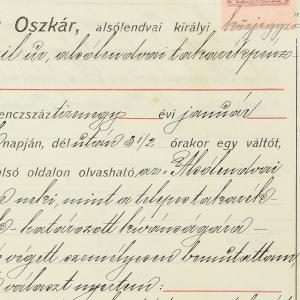 Oszkár, alsólendvai királyi közjegyző
úr, alsólendvai takarékpénz-
lenczszáz tizenegy évi január
napján, dél után 3 1/2 órakor egy váltót,
ulsó oldalon olvasható, az "Alsólendvai
neki, mint a telepes takarék
határozott kívánságára
végett személyesen bemutattam,
választ nyertem: